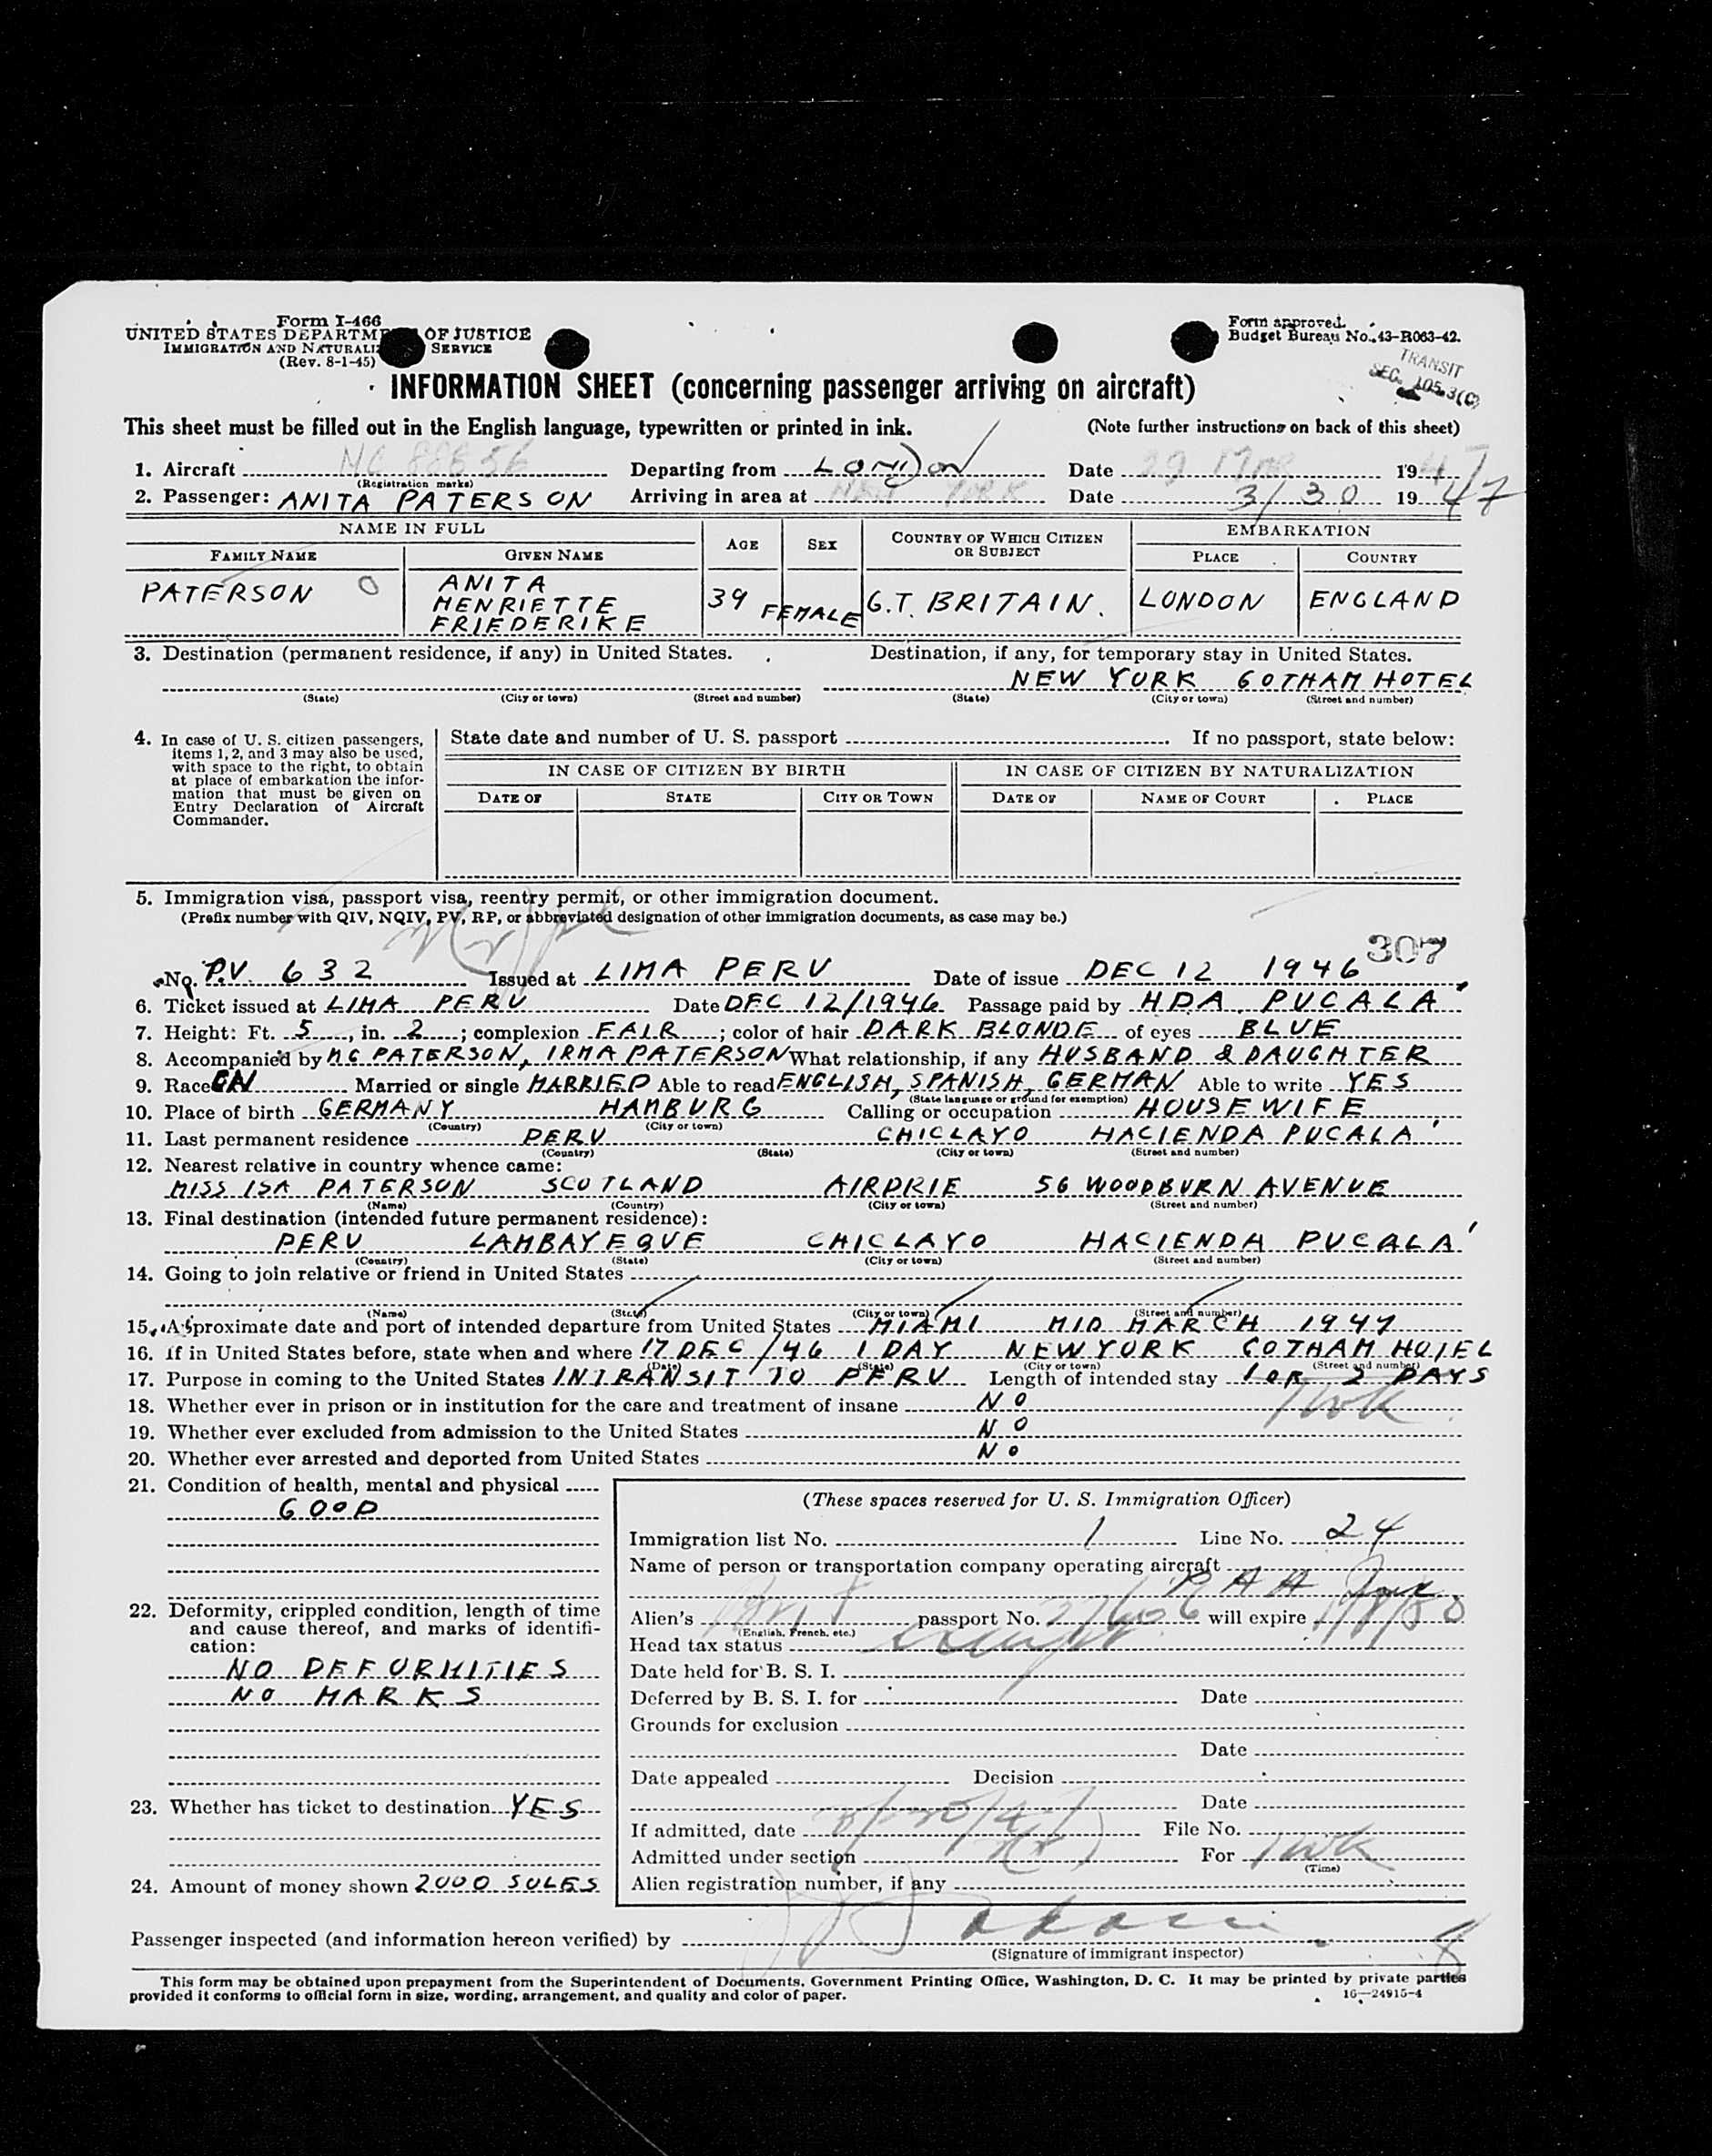 Form I-466
UNITED STATES DEPARTME OF JUSTICE
IMMIGRATION AND NATURALIZ SERVICE
(Rev. 8-1-45)
Form approved.
Budget Bureau No. 43-R063-42.
TRANSIT
SEC. 105.3(C)
INFORMATION SHEET (concerning passenger arriving on aircraft)
This sheet must be filled out in the English language, typewritten or printed in ink. (Note further instructions on back of this sheet)
1. Aircraft NC 88856 Departing from LONDON Date 29 Mar 1947
(Registration marks)
2. Passenger: ANITA PATERSON Arriving in area at NEW YORK Date 3/30 1947
NAME IN FULL AGE SEX COUNTRY OF WHICH CITIZEN OR SUBJECT EMBARKATION
FAMILY NAME GIVEN NAME PLACE COUNTRY
PATERSON O ANITA HENRIETTE FRIEDERIKE 39 FEMALE G.T. BRITAIN. LONDON ENGLAND
3. Destination (permanent residence, if any) in United States. Destination, if any, for temporary stay in United States.
NEW YORK GOTHAM HOTEL
(State) (City or town) (Street and number) (State) (City or town) (Street and number)
4. In case of U. S. citizen passengers, items 1, 2, and 3 may also be used, with space to the right, to obtain at place of embarkation the information that must be given on Entry Declaration of Aircraft Commander.
State date and number of U. S. passport If no passport, state below:
IN CASE OF CITIZEN BY BIRTH IN CASE OF CITIZEN BY NATURALIZATION
DATE OF STATE CITY OR TOWN DATE OF NAME OF COURT PLACE
5. Immigration visa, passport visa, reentry permit, or other immigration document.
(Prefix number with QIV, NQIV, PV, RP, or abbreviated designation of other immigration documents, as case may be.)
307
No. P.V. 632 Issued at LIMA PERU Date of issue DEC 12 1946
6. Ticket issued at LIMA PERU Date DEC 12/1946 Passage paid by HDA. PUCALA
7. Height: Ft. 5, in. 2; complexion FAIR; color of hair DARK BLONDE of eyes BLUE
8. Accompanied by N.C PATERSON, IRMA PATERSON What relationship, if any HUSBAND & DAUGHTER
9. Race Married or single MARRIED Able to read ENGLISH, SPANISH, GERMAN Able to write YES
(State language or ground for exemption)
10. Place of birth GERMANY HAMBURG Calling or occupation HOUSEWIFE
(Country) (City or town)
11. Last permanent residence PERU CHICLAYO HACIENDA PUCALA'
(Country) (State) (City or town) (Street and number)
12. Nearest relative in country whence came:
MISS ISA PATERSON SCOTLAND AIRDRIE 56 WOODBURN AVENUE
(Name) (Country) (City or town) (Street and number)
13. Final destination (intended future permanent residence):
PERU LAMBAYEQUE CHICLAYO HACIENDA PUCALA'
(Country) (State) (City or town) (Street and number)
14. Going to join relative or friend in United States
(Name) (State) (City or town) (Street and number)
15. Approximate date and port of intended departure from United States MIAMI MID MARCH 1947
16. If in United States before, state when and where 17 DEC/46 1 DAY NEW YORK GOTHAM HOTEL
(Date) (State) (City or town) (Street and number)
17. Purpose in coming to the United States INTRANSIT TO PERU Length of intended stay 1 OR 2 DAYS
1 wk
18. Whether ever in prison or in institution for the care and treatment of insane NO
19. Whether ever excluded from admission to the United States NO
20. Whether ever arrested and deported from United States NO
21. Condition of health, mental and physical
GOOD
22. Deformity, crippled condition, length of time and cause thereof, and marks of identification:
NO DEFORMITIES
NO MARKS
23. Whether has ticket to destination YES
24. Amount of money shown 2000 SOLES
(These spaces reserved for U. S. Immigration Officer)
Immigration list No. 1 Line No. 24
Name of person or transportation company operating aircraft
P A A
Alien's Brit passport No. will expire 1/8/50
(English, French, etc.)
Head tax status
Date held for B. S. I.
Deferred by B. S. I. for Date
Grounds for exclusion
Date
Date appealed Decision
Date
If admitted, date 3/30/47 File No.
Admitted under section For 1 wk
(Time)
Alien registration number, if any
Passenger inspected (and information hereon verified) by
(Signature of immigrant inspector)
8
This form may be obtained upon prepayment from the Superintendent of Documents, Government Printing Office, Washington, D. C. It may be printed by private parties
provided it conforms to official form in size, wording, arrangement, and quality and color of paper. 16—24915-4